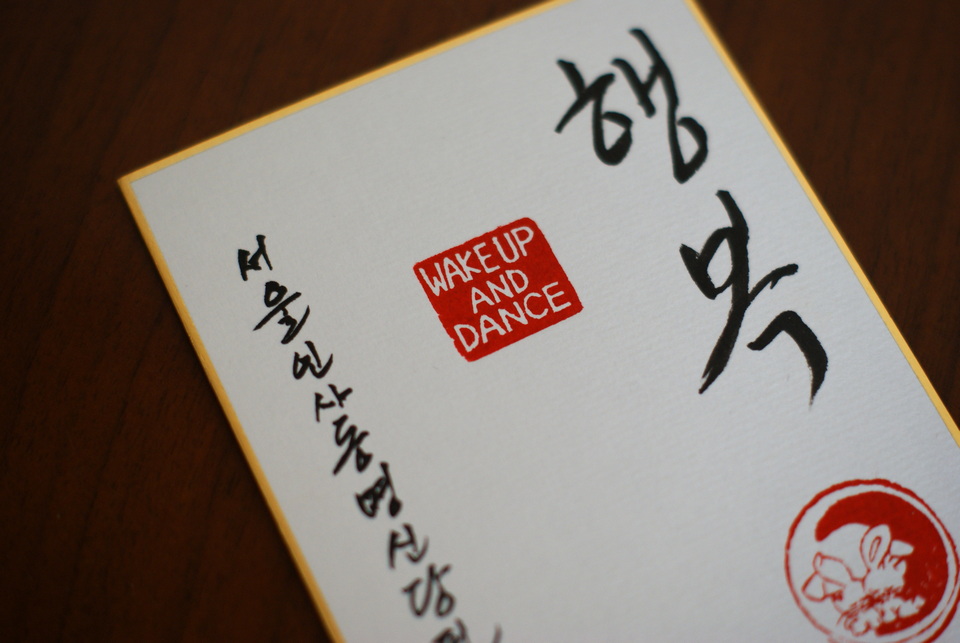 행복
WAKE UP
AND
DANCE
서울인사동명신당